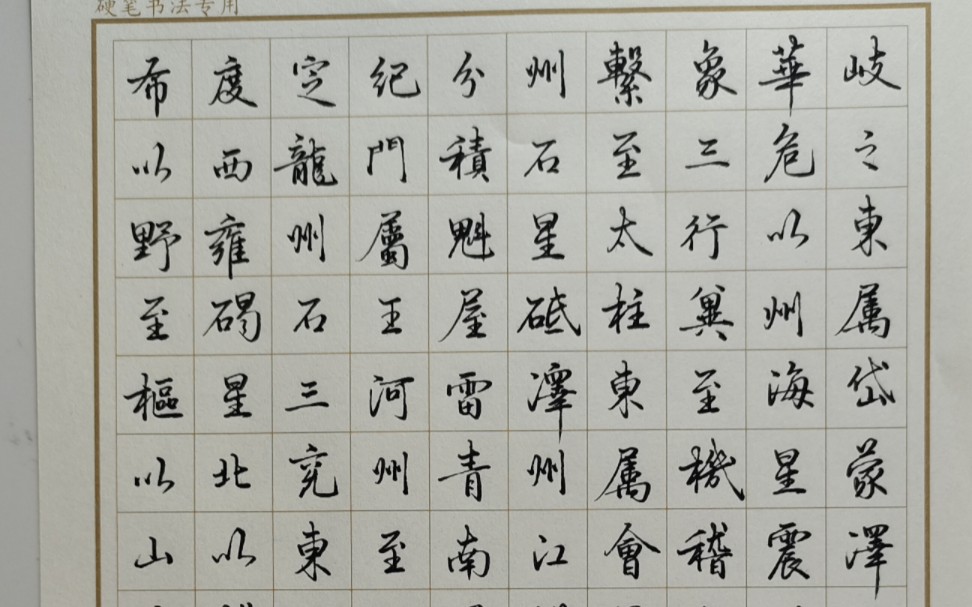 硬笔书法专用
希度定纪分州繫象華岐
以西龍門積石至三危之
野雍州屬魁星太行以東
至碣石王屋砥柱冀州属
樞星三河雷澤東至海岱
以北兗州青州属機星蒙
山以東至南江會稽震澤